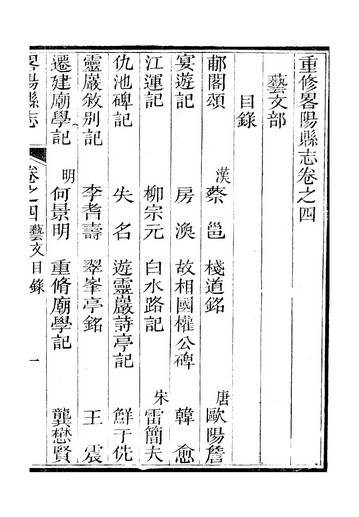 重修畧陽縣志卷之四
藝文部
目錄
郙閣頌 漢 蔡邕 棧道銘 唐 歐陽詹
宴遊記 房渙 故相國權公碑 韓愈
江運記 柳宗元 白水路記 宋 雷簡夫
仇池碑記 失名 遊靈巖詩亭記 鮮于侁
靈巖敘别記 李耆壽 翠峯亭銘 王震
遷建廟學記 明 何景明 重脩廟學記 龔懋賢
畧陽縣志 卷之四 藝文目錄 一